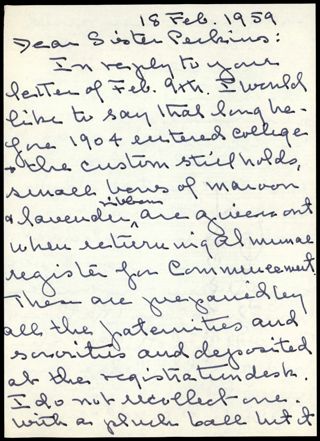 18 Feb. 1959
Dear Sister Perkins:
In reply to your
letter of Feb. 9th. I would
like to say that long be-
fore 1904 entered college
& the custom still holds,
small bows of maroon
& lavender ribbons are given out
when returning Alumnae
register for Commencement.
These are prepared by
all the fraternities and
sororities and deposited
at the registration desk.
I do not recollect one
with a plush ball but it